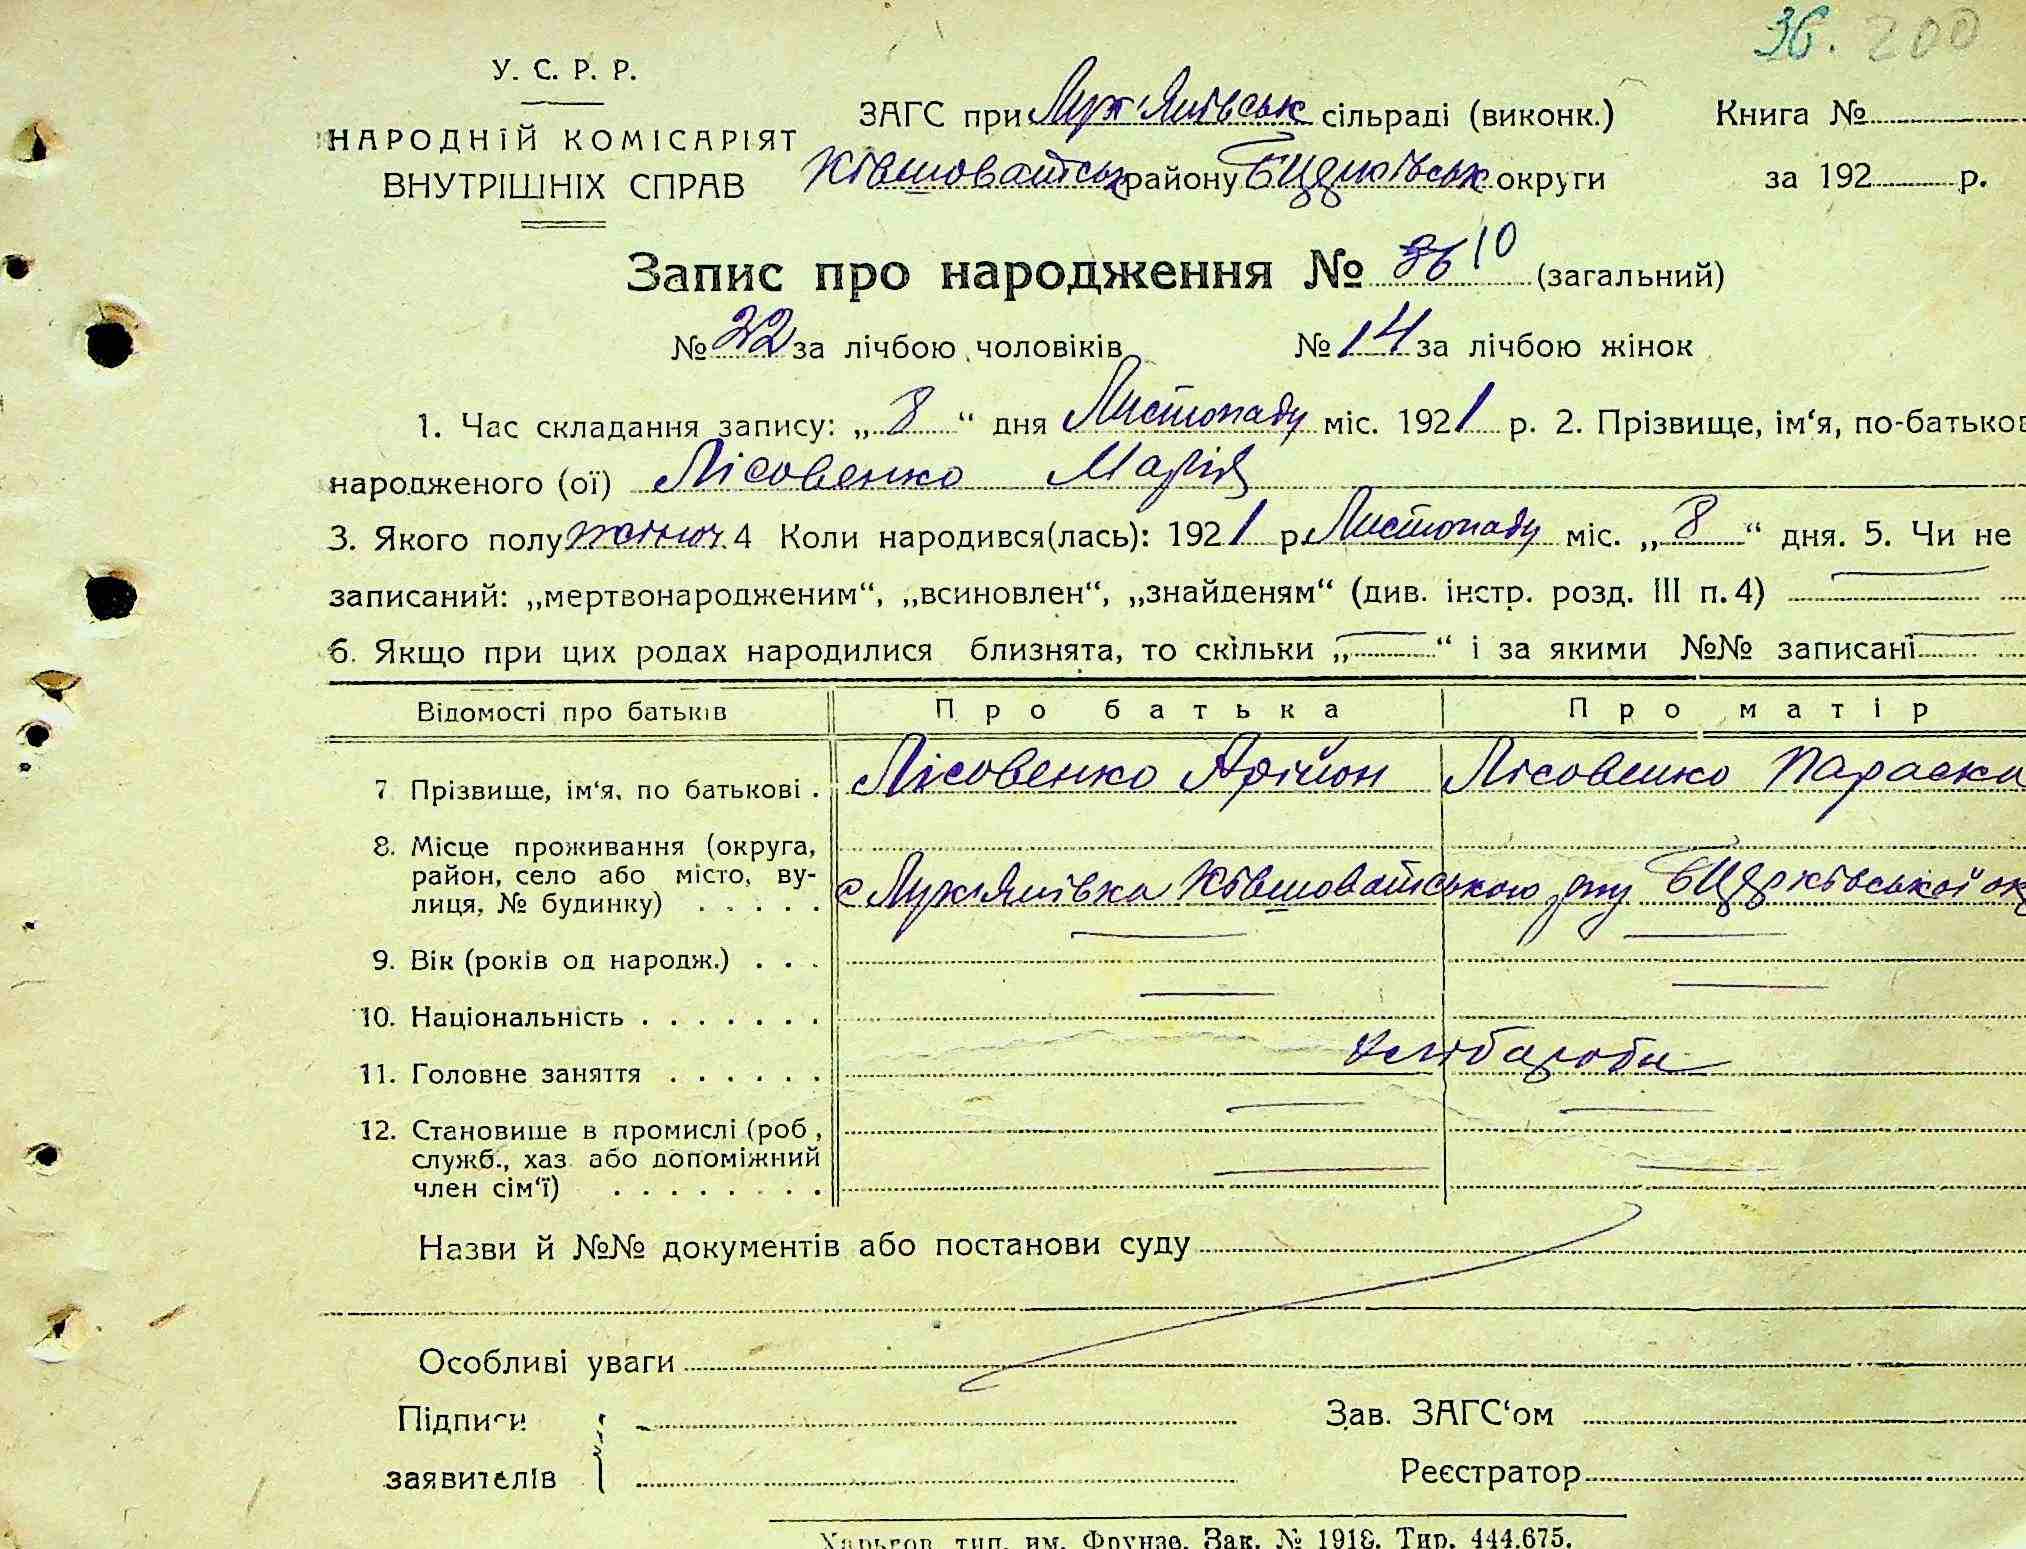 36. 200
У. С. Р. Р.
НАРОДНІЙ КОМІСАРІЯТ
ВНУТРІШНІХ СПРАВ
ЗАГС при Лук'янівськ сільраді (виконк.)
Ківшоватськ району БЦерківськ округи
Книга №
за 192 р.
Запис про народження № 36 10 (загальний)
№ 22 за лічбою чоловіків № 14 за лічбою жінок
1. Час складання запису: „8“ дня Листопаду міс. 1921 р. 2. Прізвище, ім‘я, по-батькові
народженого (ої) Лісовенко Марія
3. Якого полу жіноч. 4 Коли народився(лась): 1921 р. Листопаду міс. „8“ дня. 5. Чи не
записаний: „мертвонародженим“, „всиновлен“, „знайденям“ (див. інстр. розд. III п. 4)
6. Якщо при цих родах народилися близнята, то скільки „ “ і за якими №№ записані
Відомості про батьків Про батька Про матір
7 Прізвище, ім‘я, по батькові . Лісовенко Лісовенко Параска
8. Місце проживання (округа,
район, село або місто, ву-
лиця, № будинку) . . . . . с Лук'янівка Ківшоватського р-ну БЦерківської ок
9. Вік (років од народж.) . . .
10. Національність . . . . . . .
11. Головне заняття . . . . . . хліборобы
12. Становище в промислі (роб ,
служб., хаз. або допоміжний
член сім‘ї) . . . . . . . .
Назви й №№ документів або постанови суду
Особливі уваги
Підписи
заявителів
Зав. ЗАГС‘ом
Реєстратор
Харьков, тип. им. Фрунзе. Зак. № 1918. Тир. 444.675.